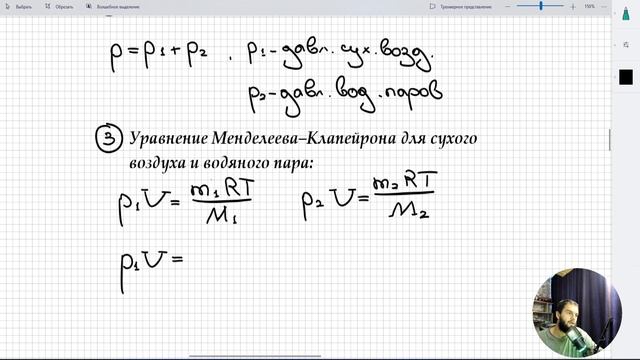 Выбрать Обрезать Волшебное выделение Трехмерное представление 150%
p = p₁ + p₂ , p₁ - давл. сух. возд.
p₂ - давл. вод. паров
③ Уравнение Менделеева–Клапейрона для сухого
воздуха и водяного пара:
p₁V = m₁RT/M₁ p₂V = m₂RT/M₂
p₁V =